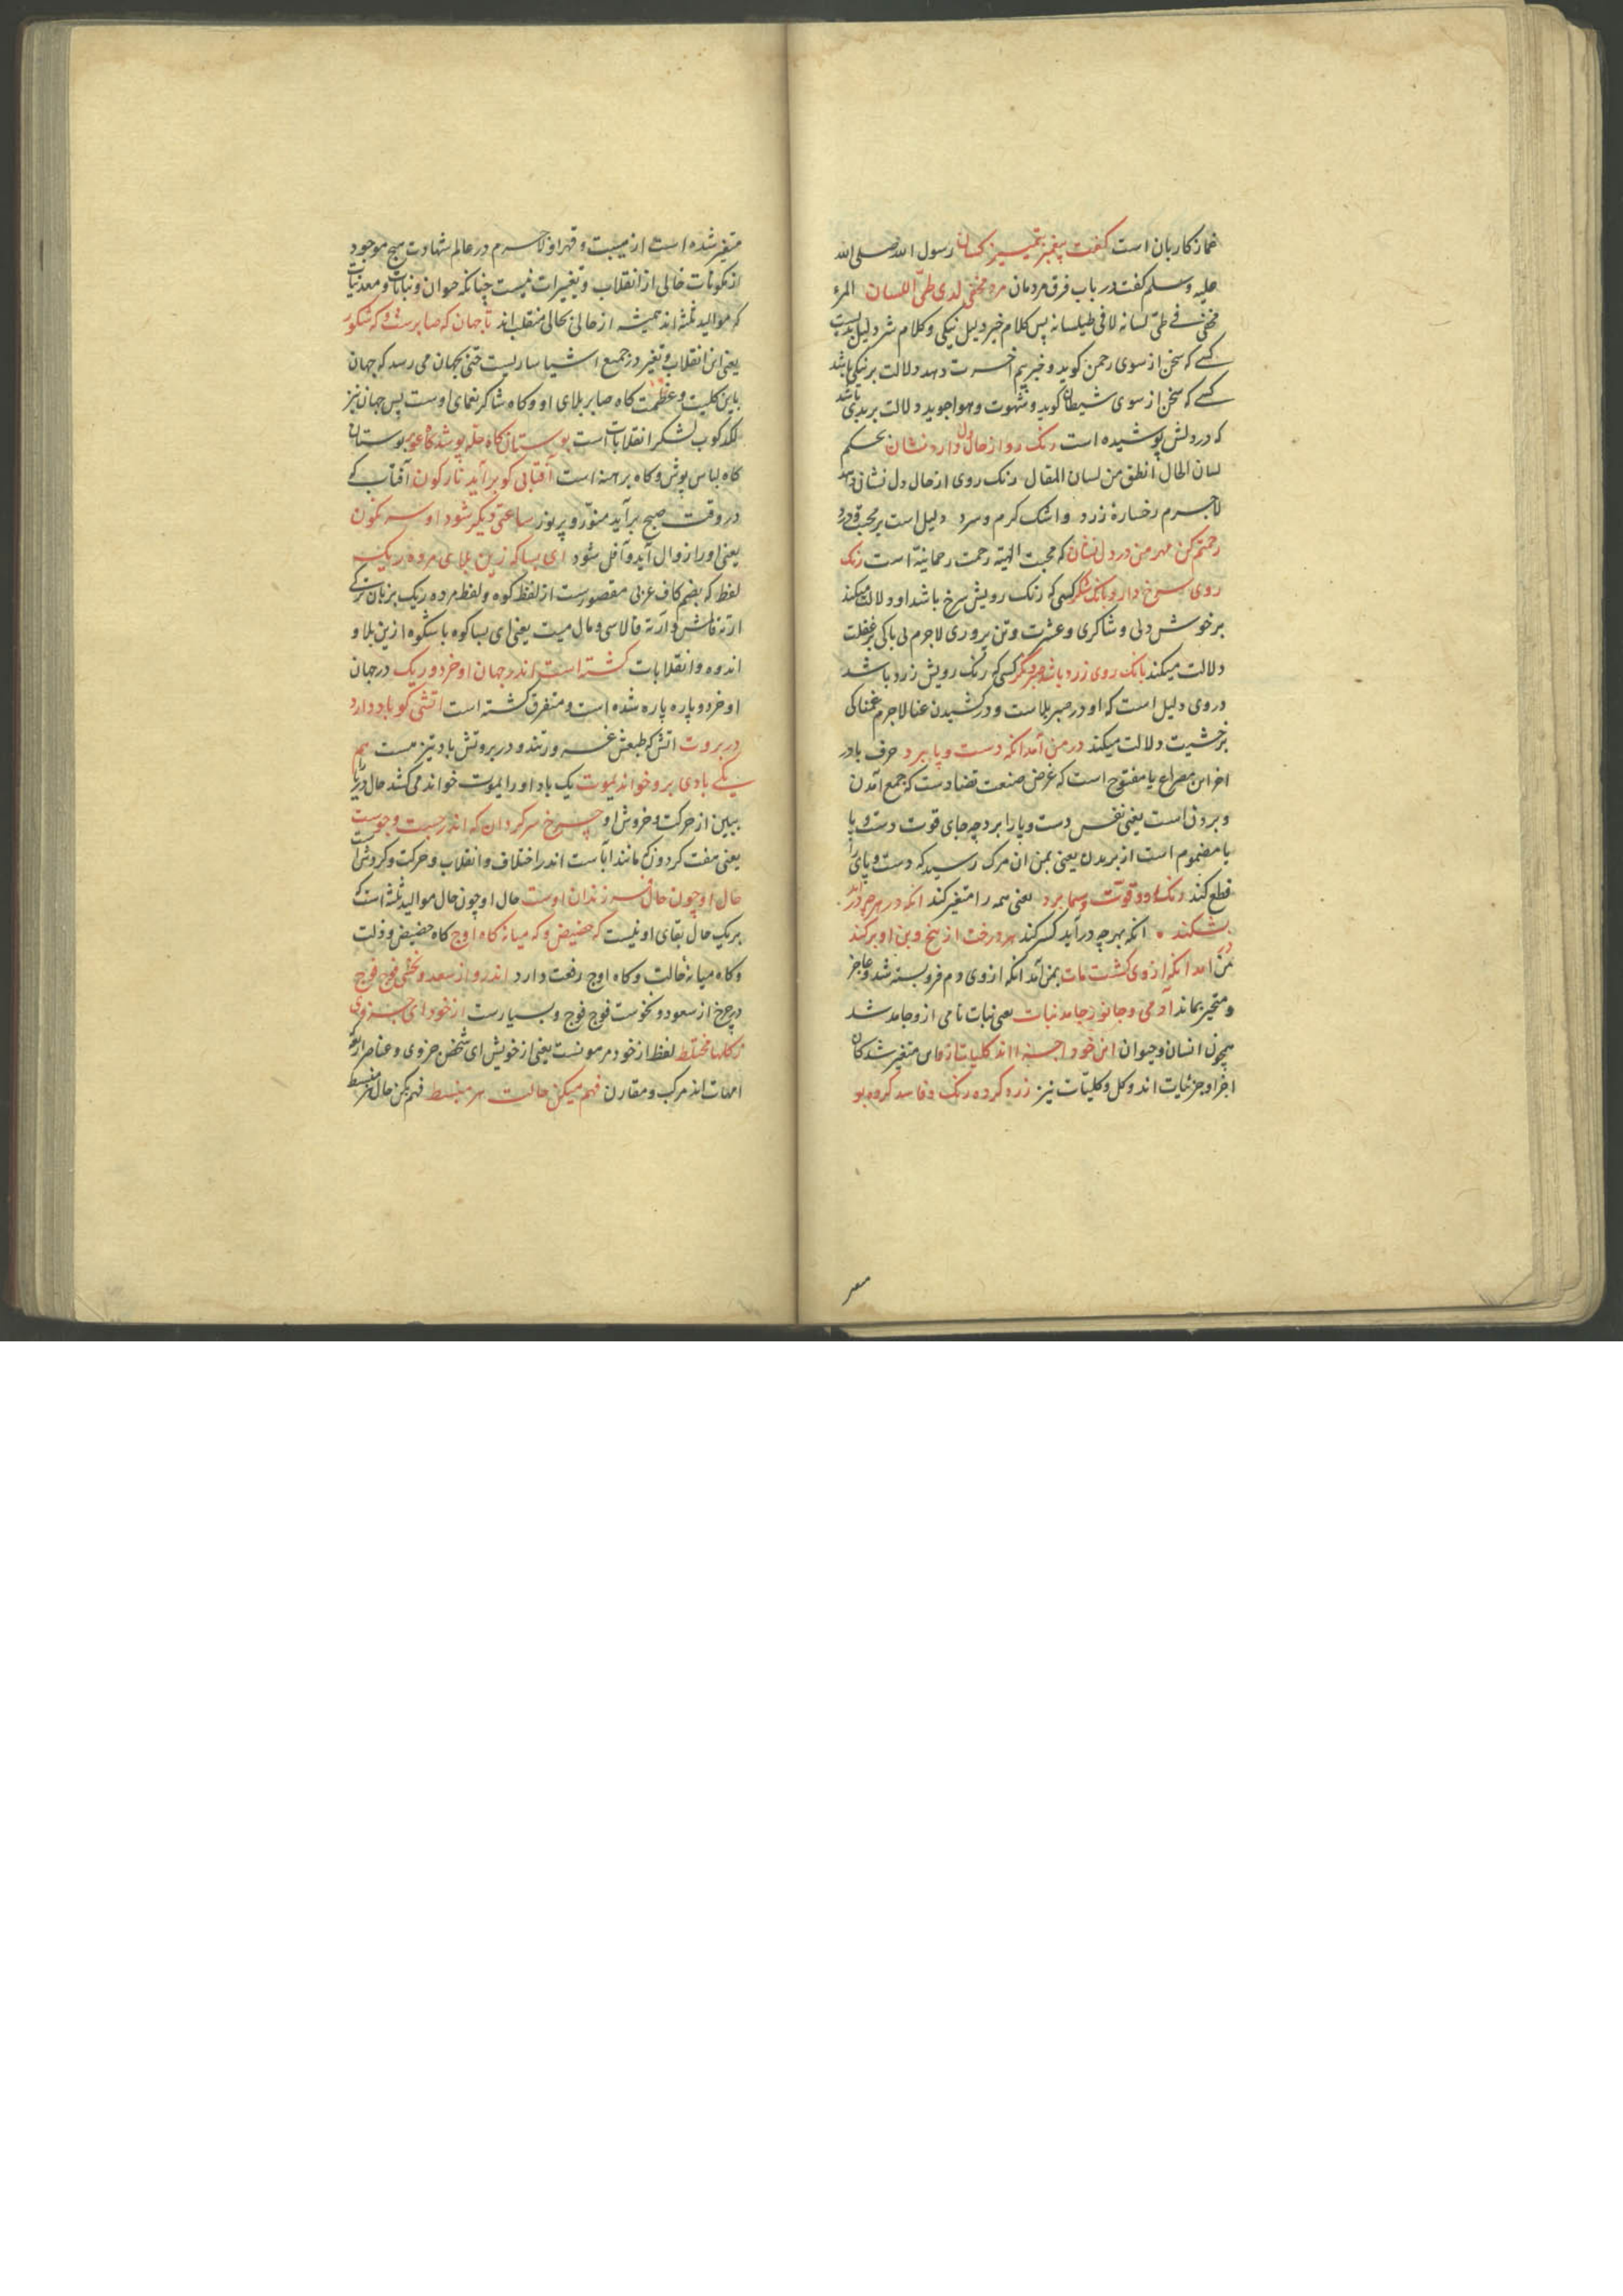 غماز کاربان است کفت پیغمبر بتمییز کسان رسول الله صلی الله
علیه وسلم کفت در باب فرق مردمان مرد مخفی لدی طیّ اللسان المرء
مخفیّ فی طیّ لسانه لا فی طیلسانه پس کلام خیر دلیل نیکی وکلام شر دلیل بدیست
کسی که سخن از سوی رحمن کوید و خبر یم آخرت دهد دلالت بر نیکی باشد
کسی که سخن از سوی شیطان کوید و شهوت و هوا جوید دلالت بر بدی باشد
که در دلش پوشیده است رنک رو از حال دل دارد نشان بحکم
لسان الحال انطق من لسان المقال رنک روی از حال دل نشانی دهد
لاجرم رخسارهٔ زرد و اشک کرم وسرد دلیل است بر محبت و درد
رحمتم کن مهر من در دل نشان که محبت الهیّه رحمت رحمانیّه است رنک
روی سرخ دارد بانک شکر کسی که رنک رویش سرخ باشد او دلالت میکند
بر خوش دلی و شاکری و عشرت و تن پروری لاجرم بی باکی بر غفلت
دلالت میکند بانک روی زرد باشد صبر و نکر کسی که رنک رویش زرد باشد
در وی دلیل است که او در صبر بلاست و در کشیدن عنا لاجرم غمناکی
بر خشیت دلالت میکند در من آمد انکه دست و پا ببرد حرف با در
اخر این مصراع با مفتوح است که غرض صنعت تضادست که جمع آمدن
و بردن است یعنی نفس دست و پا را برد چه جای قوت دست و پا
یا مضموم است از بریدن یعنی بمن ان مرک رسید که دست و پای را
قطع کند رنک رو و قوّت و سیما ببرد یعنی همه را متغیر کند انکه در هر چه در اید
بشکند انکه بهر چه در آید کسر کند هر درخت از بیخ و بن او برکند
در من امد انکه از وی کشت مات بمن آمد انکه از وی دم فرو بسته شد و عاجز
و متحیر بماند آدمی و جانور جامد نبات یعنی نبات نامی از و جامد شد
همچون انسان و حیوان این خود اجزا اند کلیات از و این متغیر شدکان
اجزا و جزئیات اند و کل و کلیّات نیز زرد کرده رنک و فاسد کرده بو
متغیر شده است از هیبت و قهر او لاجرم در عالم شهادت هیچ موجود
از مکونات خالی از انقلاب و تغییرات نیست چنانکه حیوان و نباتات و معدنیات
که موالید ثلثه اند همیشه از حالی بحالی منقلب اند تا جهان که صابرست و که شکور
یعنی این انقلاب و تغیر در جمیع اشیا ساریست حتی بجهان می رسد که جهان
باین کلیت و عظمت کاه صابر بلای او و کاه شاکر نعمای اوست پس جهان نیز
لکد کوب لشکر انقلابات است بوستان کاه حله پوشد کاه عور بوستان
کاه لباس پوش و کاه برهنه است آفتابی کو برآید نارکون آفتاب که
در وقت صبح برآید منوّر و پر نور ساعتی دیکر شود او سرنکون
یعنی او را زوال آید و آفل شود ای بسا که زین بلای مرده ریک
لفظ که بضم کاف عربی مقصورست از لفظ کوه و لفظ مرده ریک بزبان ترکی
ارته قالمش و ارته قالاسی و مال میت یعنی ای بسا کوه با شکوه ازین بلا و
اندوه و انقلابات کشته است اندر جهان او خرد و ریک در جهان
او خرد و پاره پاره شده است و متفرق کشته است اتشی کو باد دارد
در بروت اتش که طبعش غرور و تند و در بروتش باد تیز هست هم
یکی بادی برو خواند یموت یک باد او را یموت خواند می کشد حال دریا را
ببین از حرکت و خروش او چرخ سرکردان که اندر جست وجوست
یعنی هفت کردون که مانند آباست اندر اختلاف و انقلاب و حرکت و کردش است
حال او چون حال فرزندان اوست حال او چون حال موالید ثلثه است که
بر یک حال بقای او نیست که حضیض و که میانه کاه اوج کاه حضیض و ذلت
و کاه میانهٔ حالت و کاه اوج رفعت دارد اندرو از سعد و نحسی فوج فوج
در چرخ از سعود و نحوست فوج فوج و بسیارست از خود ای جزوی
ز کلها مختلط لفظ از خود مرهونست یعنی از خویش ای شخص جزوی و عناصر اربعه
امهات اند مرکب و مقارن فهم میکن حالت هر منبسط فهم بکن حال هر منبسط